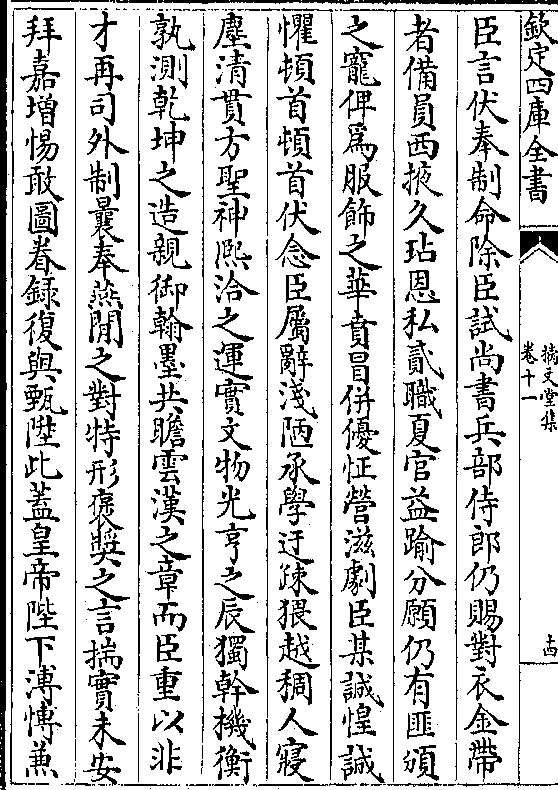 欽定四庫全書
摛文堂集
卷十一
十四
臣言伏奉制命除臣試尚書兵部侍郎仍賜對衣金帶
者備員西掖久玷恩私貳職夏官益踰分願仍有匪頒
之寵俾為服飾之華賁冒併優怔營滋劇臣某誠惶誠
懼頓首頓首伏念臣屬辭淺陋承學迂疎猥越稠人寖
塵清貫方聖神熙洽之運實文物光亨之辰獨幹機衡
孰測乾坤之造親御翰墨共瞻雲漢之章而臣重以非
才再司外制曩奉燕閒之對特形褒奬之言揣實未安
拜嘉增惕敢圖眷録復與甄陞此蓋皇帝陛下溥愽焘